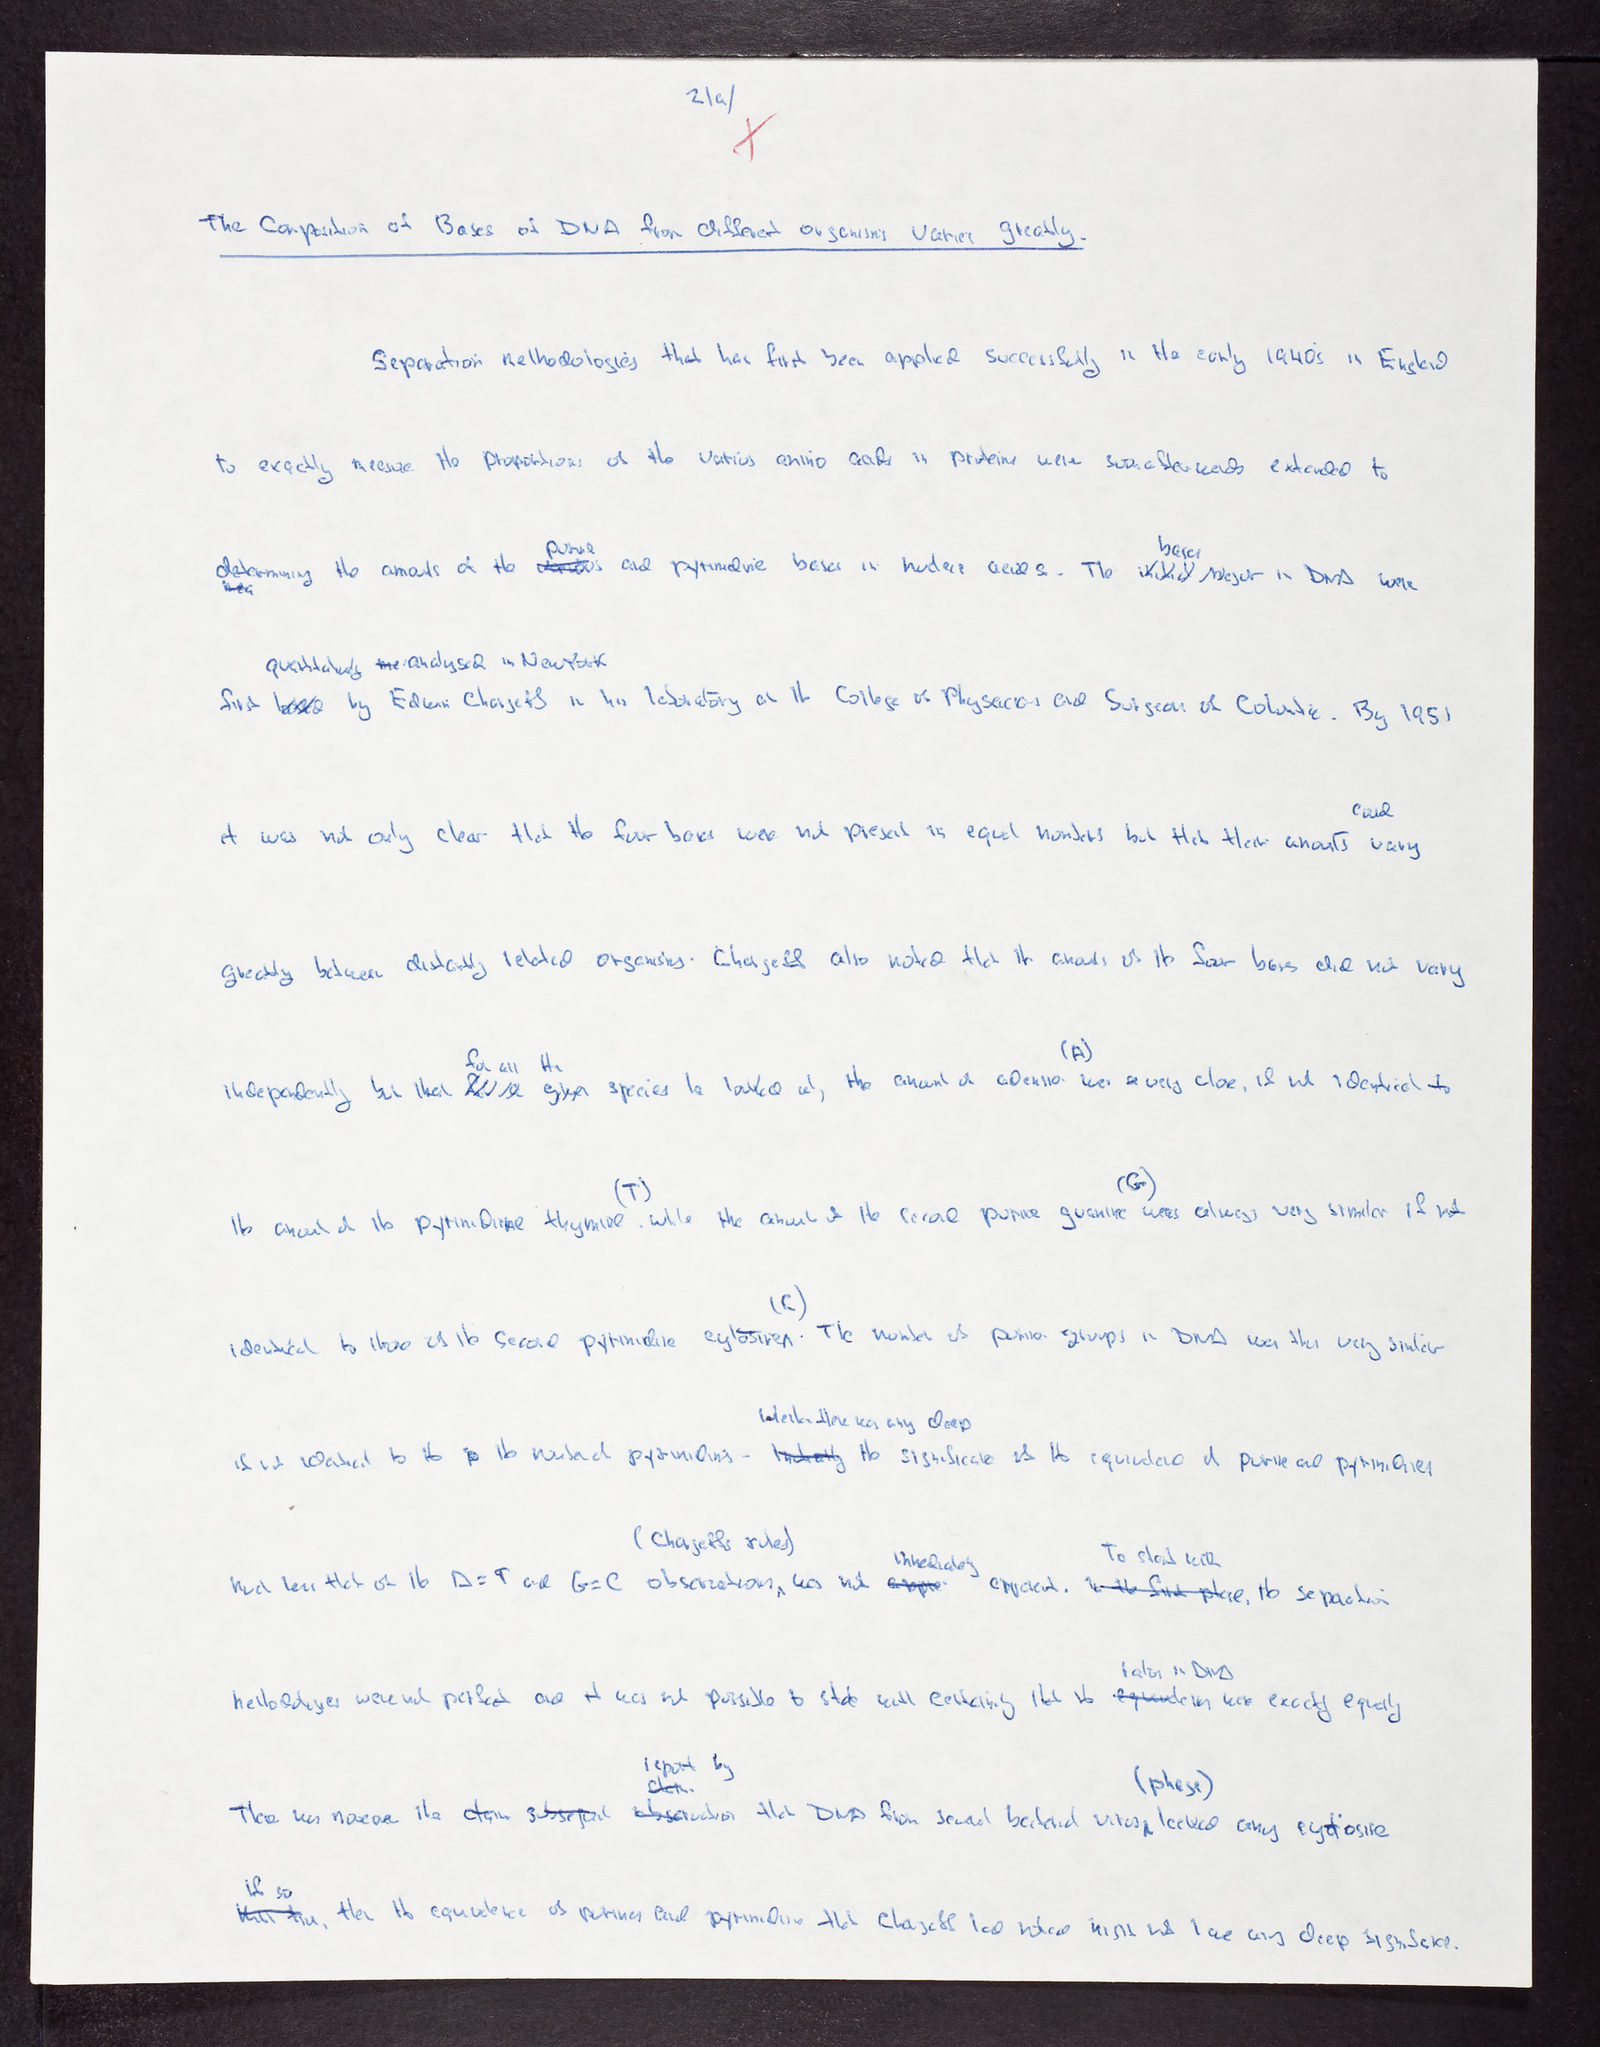 21a/
X
The Composition of Bases of DNA from different organisms varies greatly.
Separation methodologies that has first been applied successfully in the early 1940's in England
to exactly measure the proportions of the various amino acids in proteins were soon afterwards extended to
purine
determining the amounts of the various and pyrimidine bases in nucleic acids. The major in DNA were
bases
quantitatively the analysed in New York
first by Edwin Chargaff in his laboratory at the College of Physicians and Surgeons of Columbia. By 1951
could
it was not only clear that the four bases were not present in equal numbers but that their amounts vary
greatly between distantly related organisms. Chargaff also noted that the amounts of the four bases did not vary
for all the (A)
independently but that given species he looked at, the amount of adenine was very close, if not identical to
(T) (G)
the amount of the pyrimidine thymine. while the amount of the second purine guanine was always very similar if not
(C)
identical to those of the second pyrimidine cytosine. The number of purine groups in DNA was thus very similar
whether there was any deep
if not identical to the to the number of pyrimidines. Initially the significance of the equivalence of purine and pyrimidines
(Chargaff's rules) immediately To start with
much less that of the A=T and G=C observations, was not appar apparent. in the first place, the separation
ratios in DNA
methodologies were not perfect and it was not possible to state with certainty that the equivalences were exactly equally
report by
claim (phage)
There was moreover the claim subsequent observation that DNA from several bacterial viruses lacked any cytosine
If so
this, then the equivalence of purines and pyrimidine that Chargaff had noted might not have any deep significance.